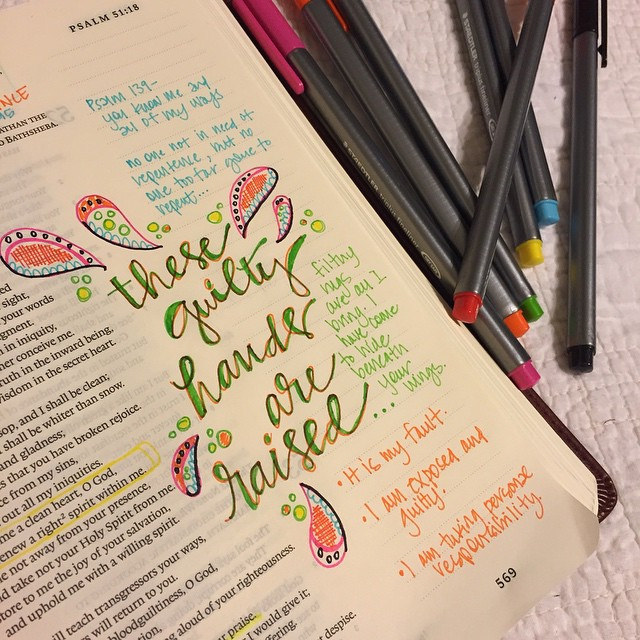 PSALM 51:18
NCE
NATHAN THE
O BATHSHEBA.
Psalm 139-
you know me and
all of my ways
no one not in need of
repentence, but no
one too far gone to
repent...
these
guilty
hands
are
raised
filthy
rags
are all I
bring. I
have come
to hide
beneath
your
wings.
...
• It is my fault.
• I am exposed and
guilty.
• I am taking personal
responsibility.
sight,
your words
gment.
in iniquity,
her conceive me.
ruth in the inward being,
wisdom in the secret heart.
sop, and I shall be clean;
shall be whiter than snow.
and gladness;
s that you have broken rejoice.
ce from my sins,
out all my iniquities.
me a clean heart, O God,
enew a right spirit within me.
me not away from your presence,
d take not your Holy Spirit from me.
tore to me the joy of your salvation,
and uphold me with a willing spirit.
ill teach transgressors your ways,
rs will return to you.
bloodguiltiness, O God,
ng aloud of your righteousness.
praise.
I would give it;
ffering
despise.
569
STAEDTLER